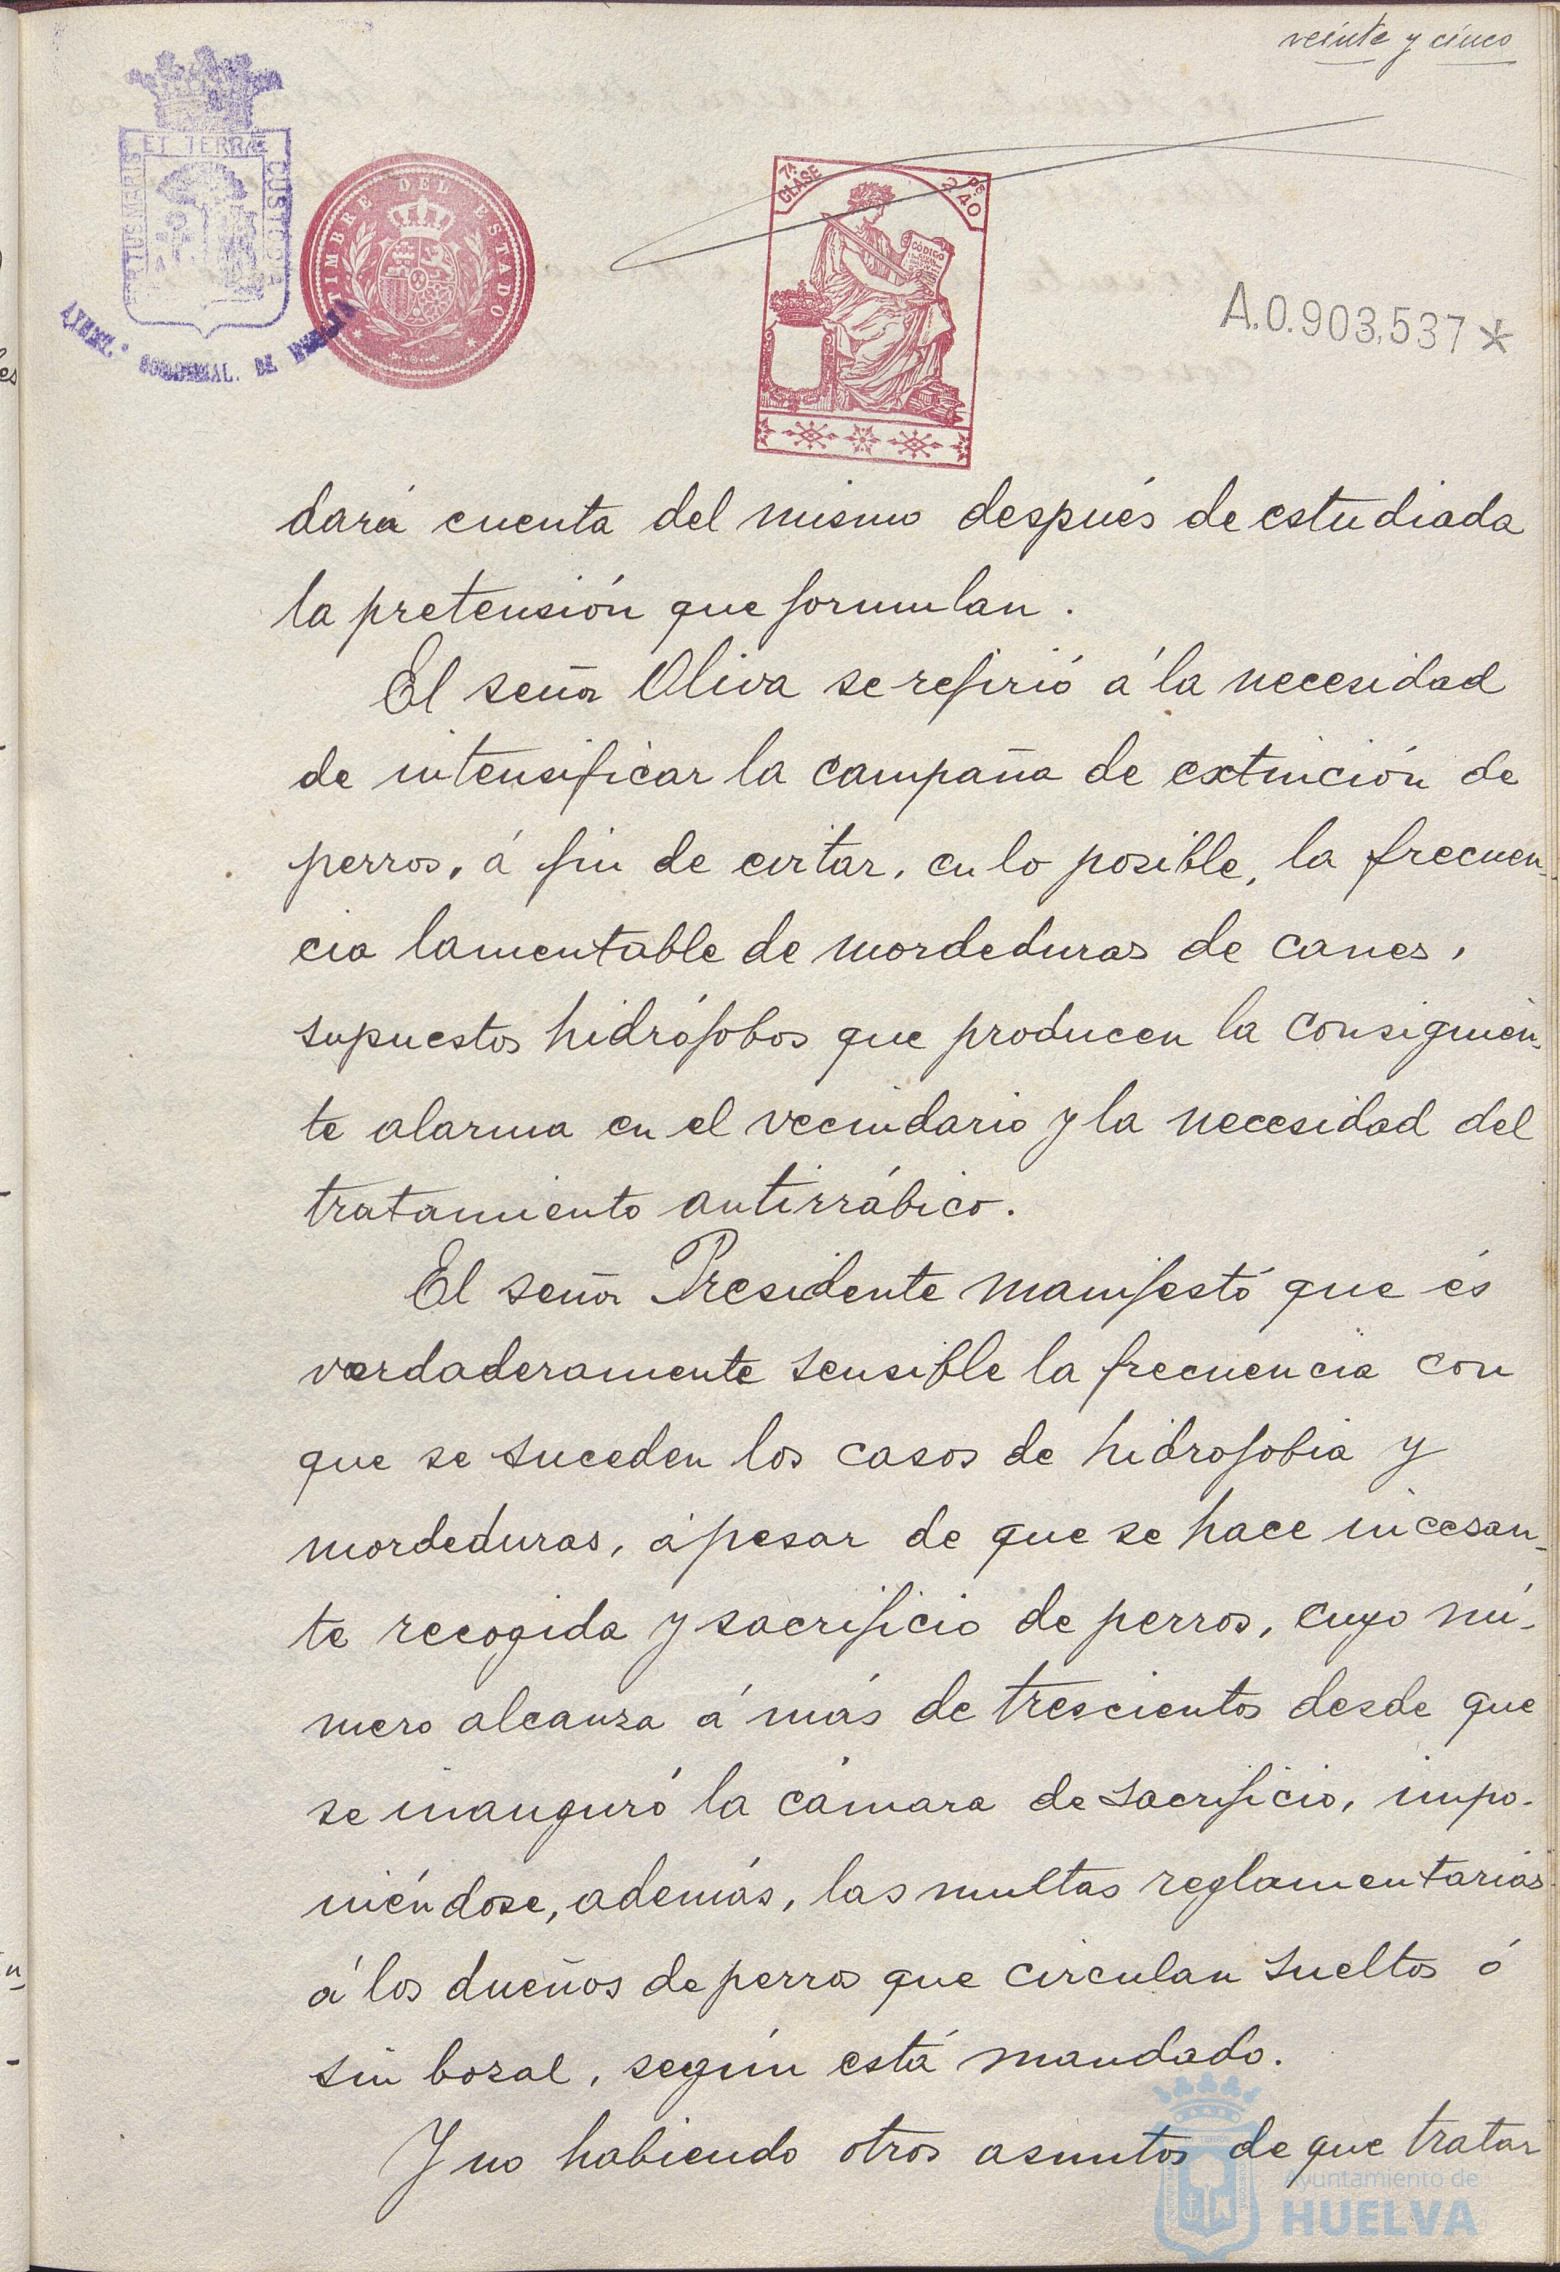 veinte y cinco
ET TERRÆ
CUSTODIA
AYUNT.º CONSTITUCIONAL. DE HUELVA
TIMBRE DEL ESTADO
7ª CLASE
2 Ps 40
CÓDIGO
A.0.903,537*
dará cuenta del mismo después de estudiada
la pretensión que formulan.
El señor Oliva se refirió á la necesidad
de intensificar la campaña de extinción de
perros, á fin de evitar, en lo posible, la frecuen-
cia lamentable de mordeduras de canes,
supuestos hidrófobos que producen la consiguien-
te alarma en el vecindario y la necesidad del
tratamiento antirrábico.
El señor Presidente manifestó que és
verdaderamente sensible la frecuencia con
que se suceden los casos de hidrofobia y
mordeduras, ápesar de que se hace incesan-
te recogida y sacrificio de perros, cuyo nú-
mero alcanza á más de trescientos desde que
se inauguró la cámara de sacrificio, impo-
niéndose, además, las multas reglamentarias
á los dueños de perros que circulan sueltos ó
sin bozal, según está mandado.
Y no habiendo otros asuntos de que tratar
Ayuntamiento de
HUELVA